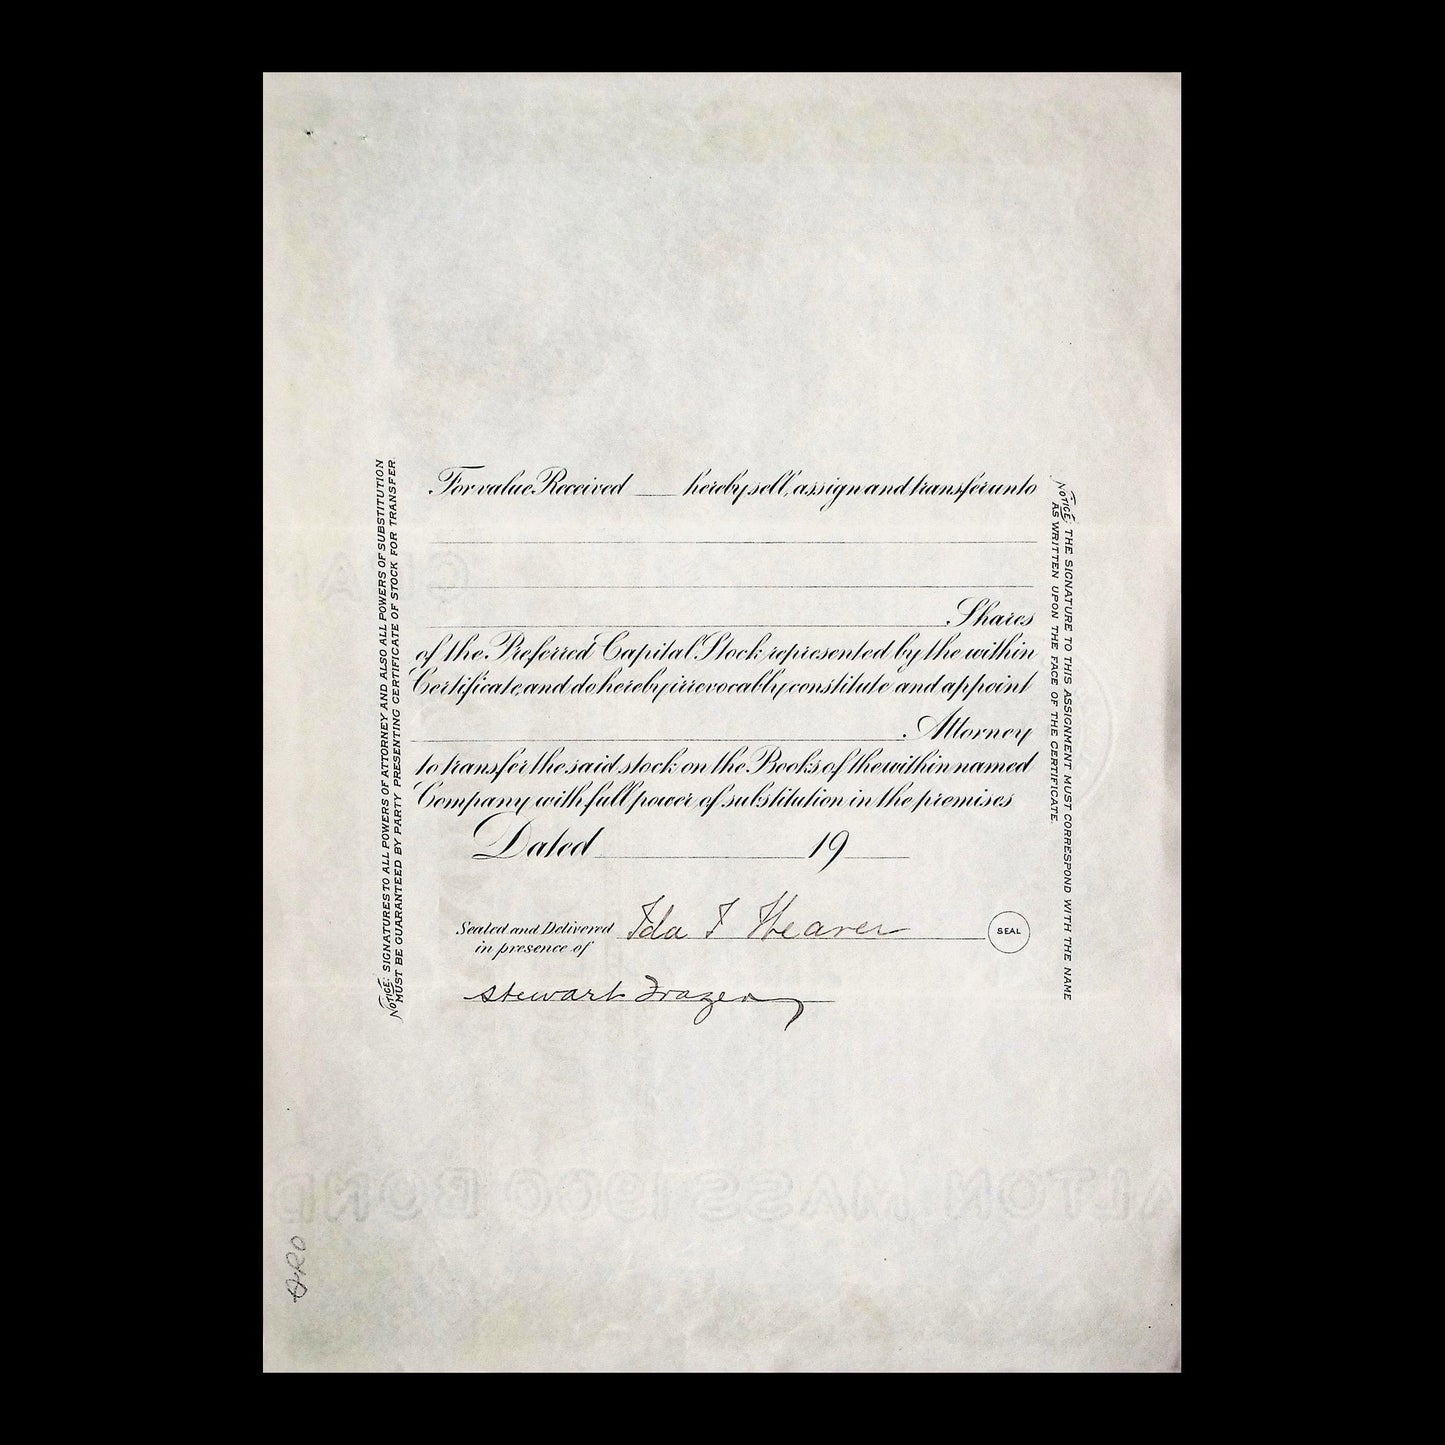 For value Received ____ hereby sell, assign and transfer unto
Shares
of the Preferred Capital Stock represented by the within
Certificate, and do hereby irrevocably constitute and appoint
Attorney
to transfer the said stock on the Books of the within named
Company with full power of substitution in the premises
Dated ____ 19 ____
Sealed and Delivered
in presence of
Ida F
SEAL
Stewart
NOTICE: SIGNATURES TO ALL POWERS OF ATTORNEY AND ALSO ALL POWERS OF SUBSTITUTION
MUST BE GUARANTEED BY PARTY PRESENTING CERTIFICATE OF STOCK FOR TRANSFER.
NOTICE: THE SIGNATURE TO THIS ASSIGNMENT MUST CORRESPOND WITH THE NAME
AS WRITTEN UPON THE FACE OF THE CERTIFICATE.
DALTON MASS 1900 BOND